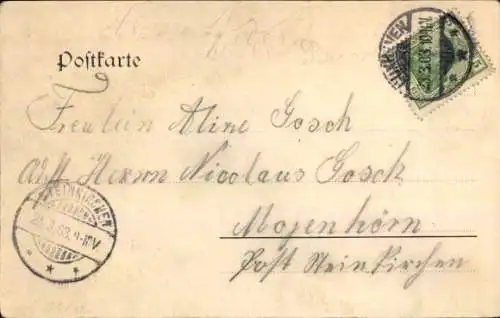 Postkarte
Fraulein Aline Gosch
Adr. Herrn Nicolaus Gosch
Mojenhörn
Post Steinkirchen
STEINKIRCHEN
5